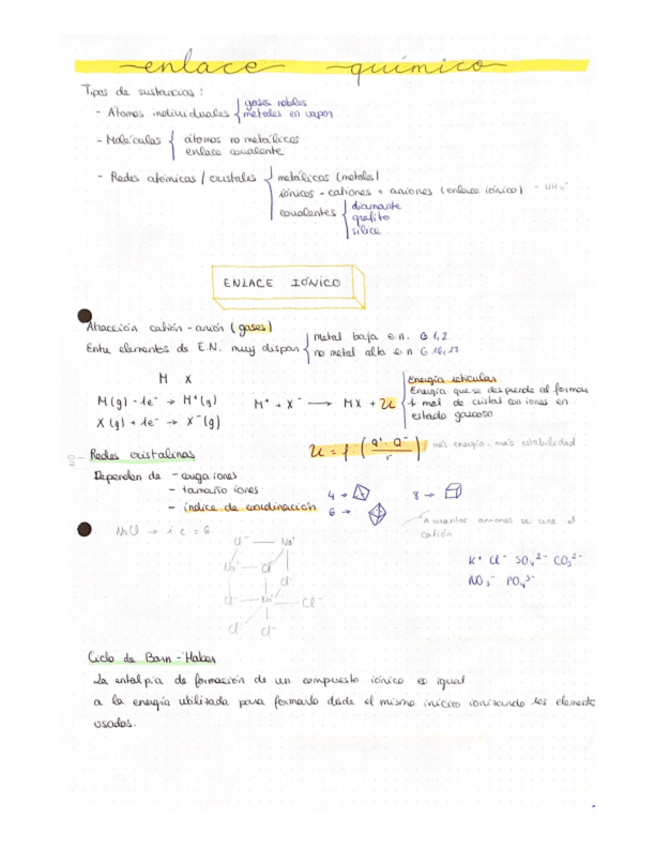 enlace químico
Tipos de sustancias:
- Átomos individuales { gases nobles
metales en vapor
- Moléculas { átomos no metálicos
enlace covalente
- Redes atómicas / cristales { metálicas (metales)
iónicos - cationes + aniones (enlace iónico) - NH4+
covalentes { diamante
grafito
sílice
ENLACE IÓNICO
Atracción catión-anión (gases)
Entre elementos de E.N. muy dispar { metal baja e.n. G 1,2
no metal alta e.n G 16,17
M X
M(g) - 1e⁻ → M⁺(g)
X(g) + 1e⁻ → X⁻(g)
M⁺ + X⁻ → MX + U
Energía reticular
Energía que se desprende al formar
1 mol de cristal con iones en
estado gaseoso
U = f · (Q⁺ · Q⁻ / r) más energía - más estabilidad
Redes cristalinas
Dependen de - carga iones
- tamaño iones
- índice de coordinación
4 →
8 →
6 →
A cuantos aniones se une el
catión
NaCl → i.c = 6
Cl⁻ — Na⁺
Na⁺ — Cl⁻
Cl⁻
Cl⁻ — Na⁺ — Cl⁻
Cl⁻ Cl⁻
K⁺ Cl⁻ SO₄²⁻ CO₃²⁻
NO₃⁻ PO₄³⁻
Ciclo de Born-Haber
La entalpía de formación de un compuesto iónico es igual
a la energía utilizada para formarlo desde el mismo inicio ionizando los elementos
usados.